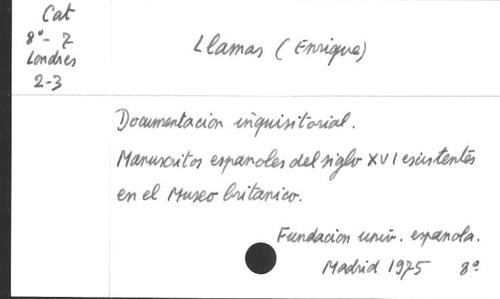 Cat
8º - 7
Londres
2-3
Llamas (Enrique)
Documentacion inquisitorial.
Manuscritos españoles del siglo XVI existentes
en el Museo britanico.
Fundacion univ. española.
Madrid 1975 8º